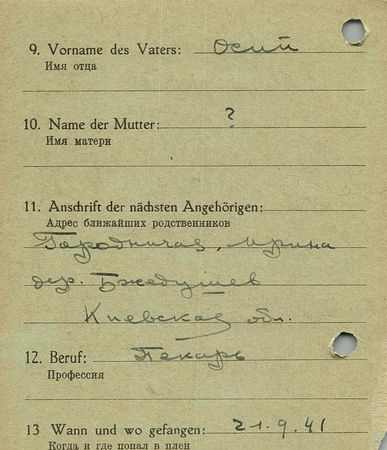 9. Vorname des Vaters: Осип
Имя отца
10. Name der Mutter: ?
Имя матери
11. Anschrift der nächsten Angehörigen:
Адрес ближайших родственников
Городничая, Ирина
дер. Бжедушев
Киевская обл.
12. Beruf: Пекарь
Профессия
13 Wann und wo gefangen: 21.9.41
Когда и где попал в плен